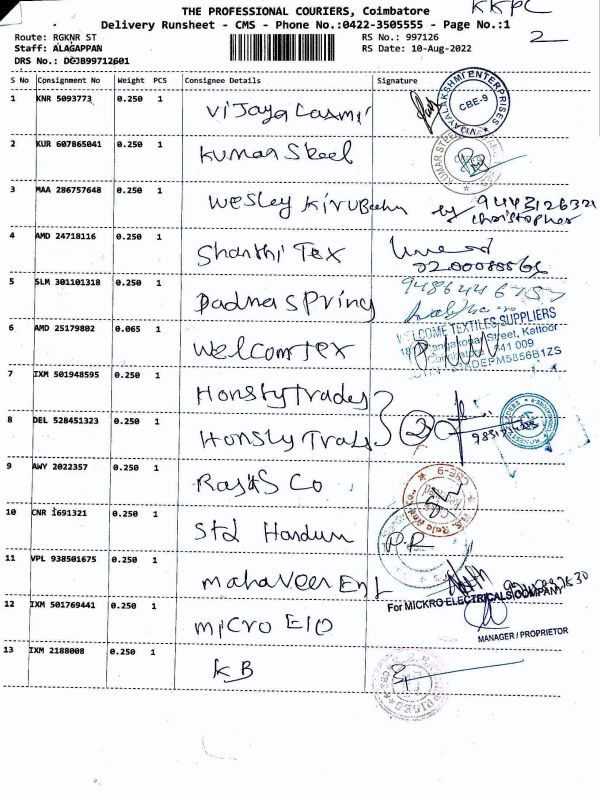 THE PROFESSIONAL COURIERS, Coimbatore
KKPC
Delivery Runsheet - CMS - Phone No.:0422-3505555 - Page No.:1
2
Route: RGKNR ST
RS No.: 997126
Staff: ALAGAPPAN
RS Date: 10-Aug-2022
DRS No.: DCJB99712601
S No Consignment No Weight PCS Consignee Details Signature
1 KNR 5093773 0.250 1 Vijaya Laxmi
VIJAYALAKSHMI ENTERPRISES CBE-9
2 KUR 607865041 0.250 1 Kumar Steel
KUMAR STEEL
3 MAA 286757648 0.250 1 Wesley by 9443126321
christopher
4 AMD 24718116 0.250 1 Shanthi Tex
5 SLM 301101318 0.250 1 Padma Spring
6 AMD 25179802 0.065 1 Welcomtex
WELCOME TEXTILES SUPPLIERS
Kattoor
Coimbatore 641 009
7 IXM 501948595 0.250 1 Honsty Trades
8 DEL 528451323 0.250 1 Honsty 2
9 AWY 2022357 0.250 1 Co
CBE-9
10 CNR 1691321 0.250 1 Std
P.R
11 VPL 938501675 0.250 1 Mahaveer Ent
12 IXM 501769441 0.250 1 Micro Elo
For MICKRO ELECTRICALS COMPANY
MANAGER / PROPRIETOR
13 IXM 2188008 0.250 1 KB